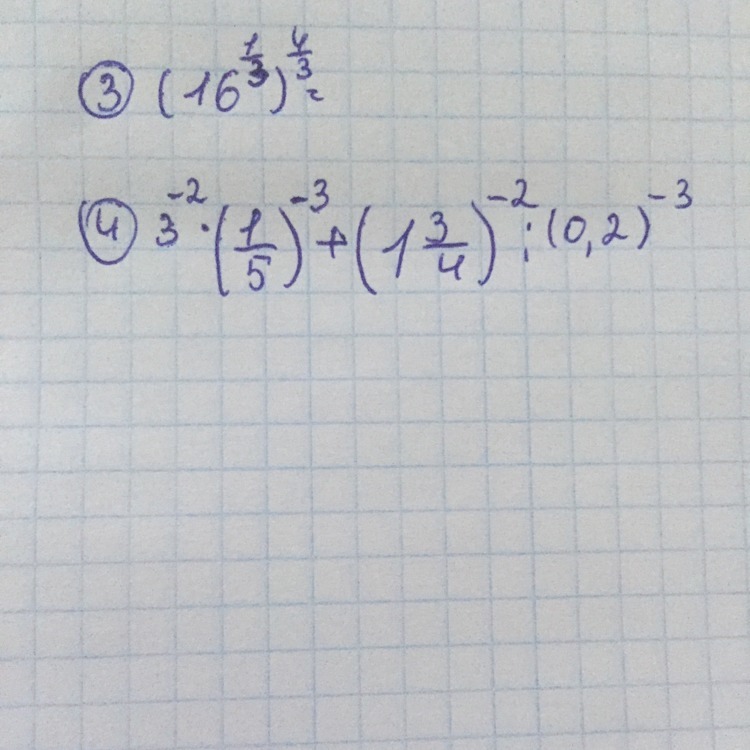 ③ (16^{\frac{1}{3}})^{\frac{4}{3}} =
④ 3^{-2} · (\frac{1}{5})^{-3} + (1\frac{3}{4})^{-2} : (0,2)^{-3}